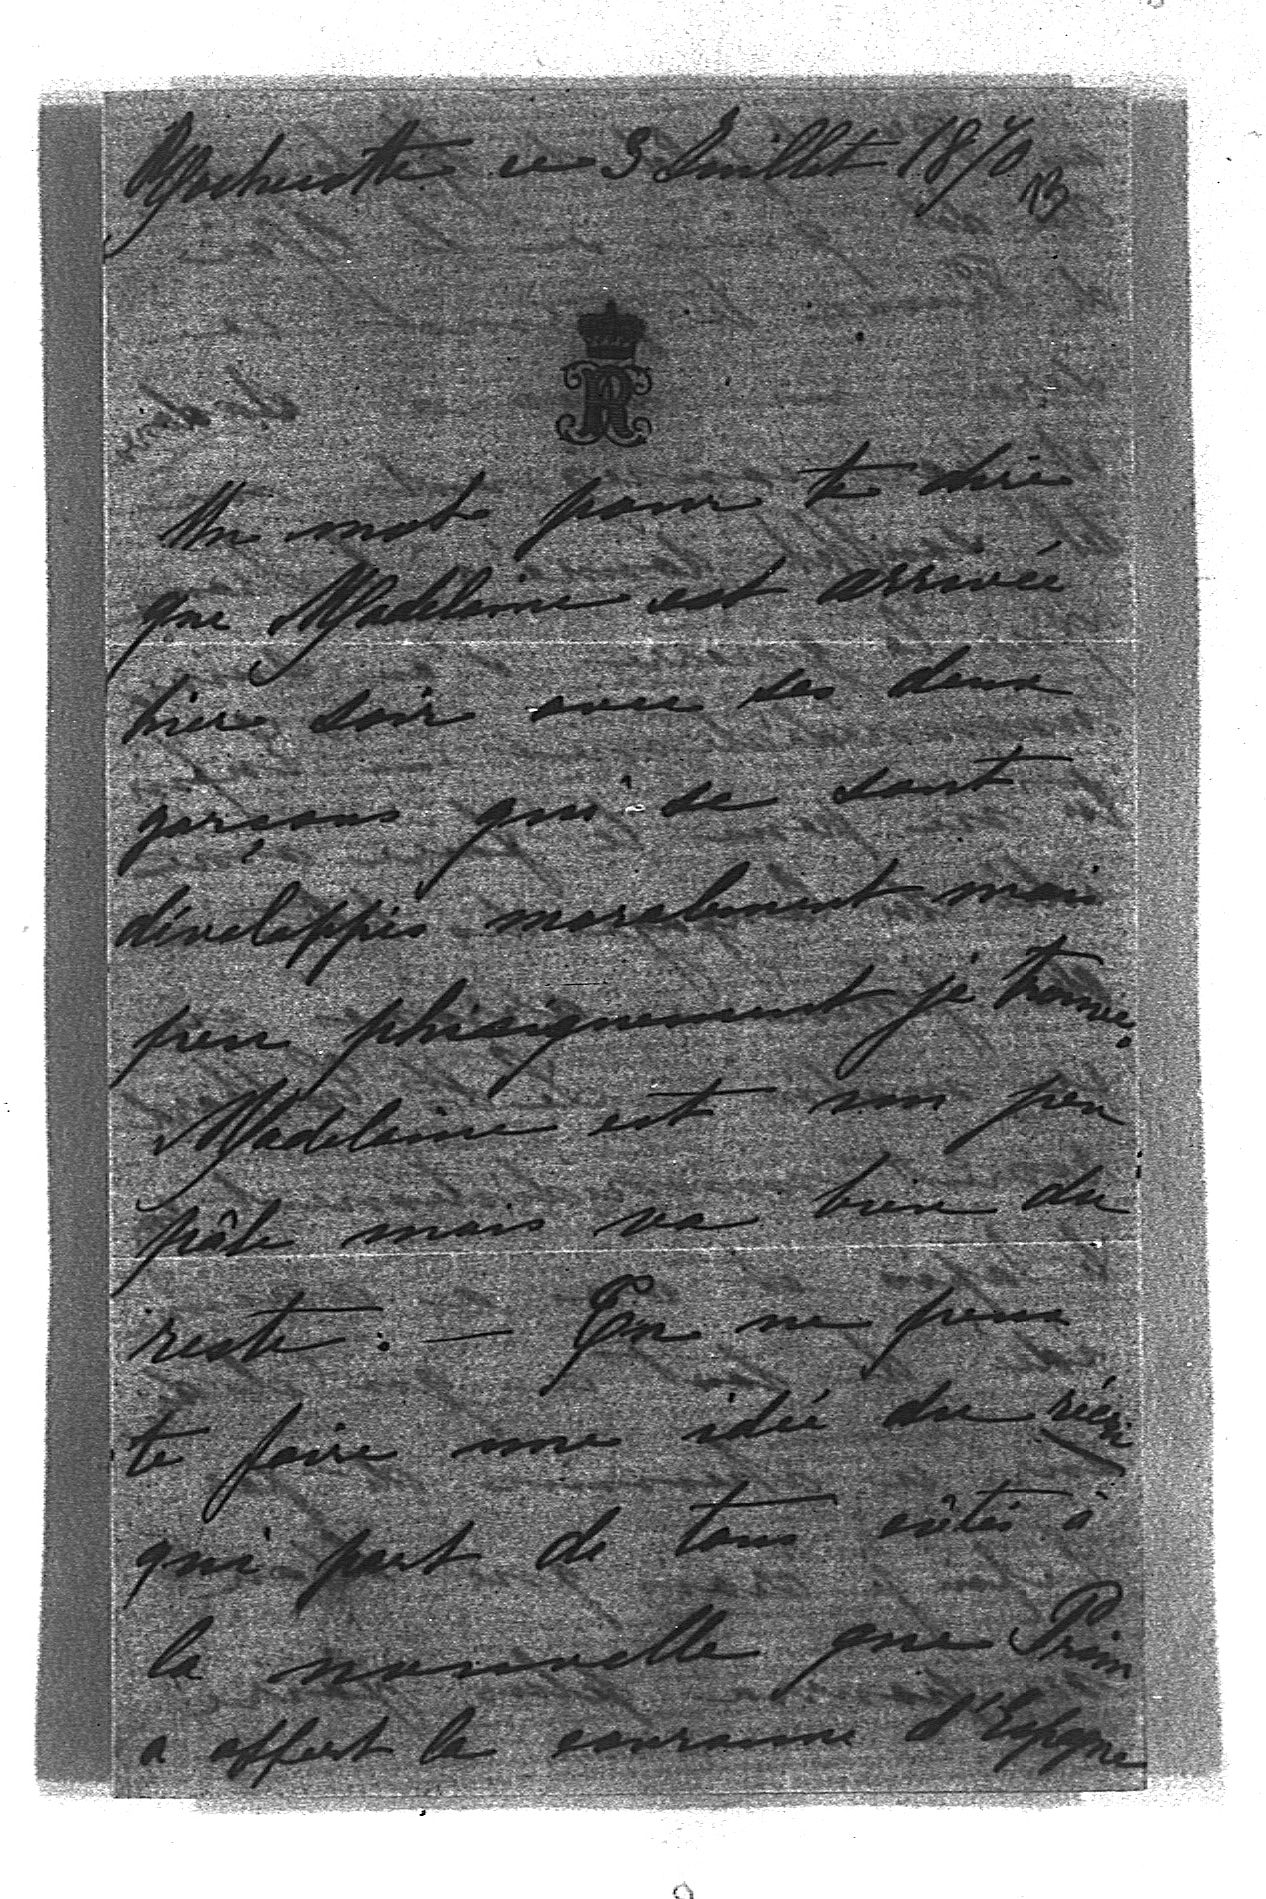 ce 3 Juillet 1870
Un mot pour te dire
que Madeleine est arrivée
hier soir avec ses deux
garçons qui se sont
dévelappés moralement mais
peu phisiquement je trouve.
Madeleine est un peu
pâle mais va bien du
reste. — Tu ne peux
te faire une idée du
qui part de tous côtés à
la nouvelle que Prim
a offert la couronne d'Espagne